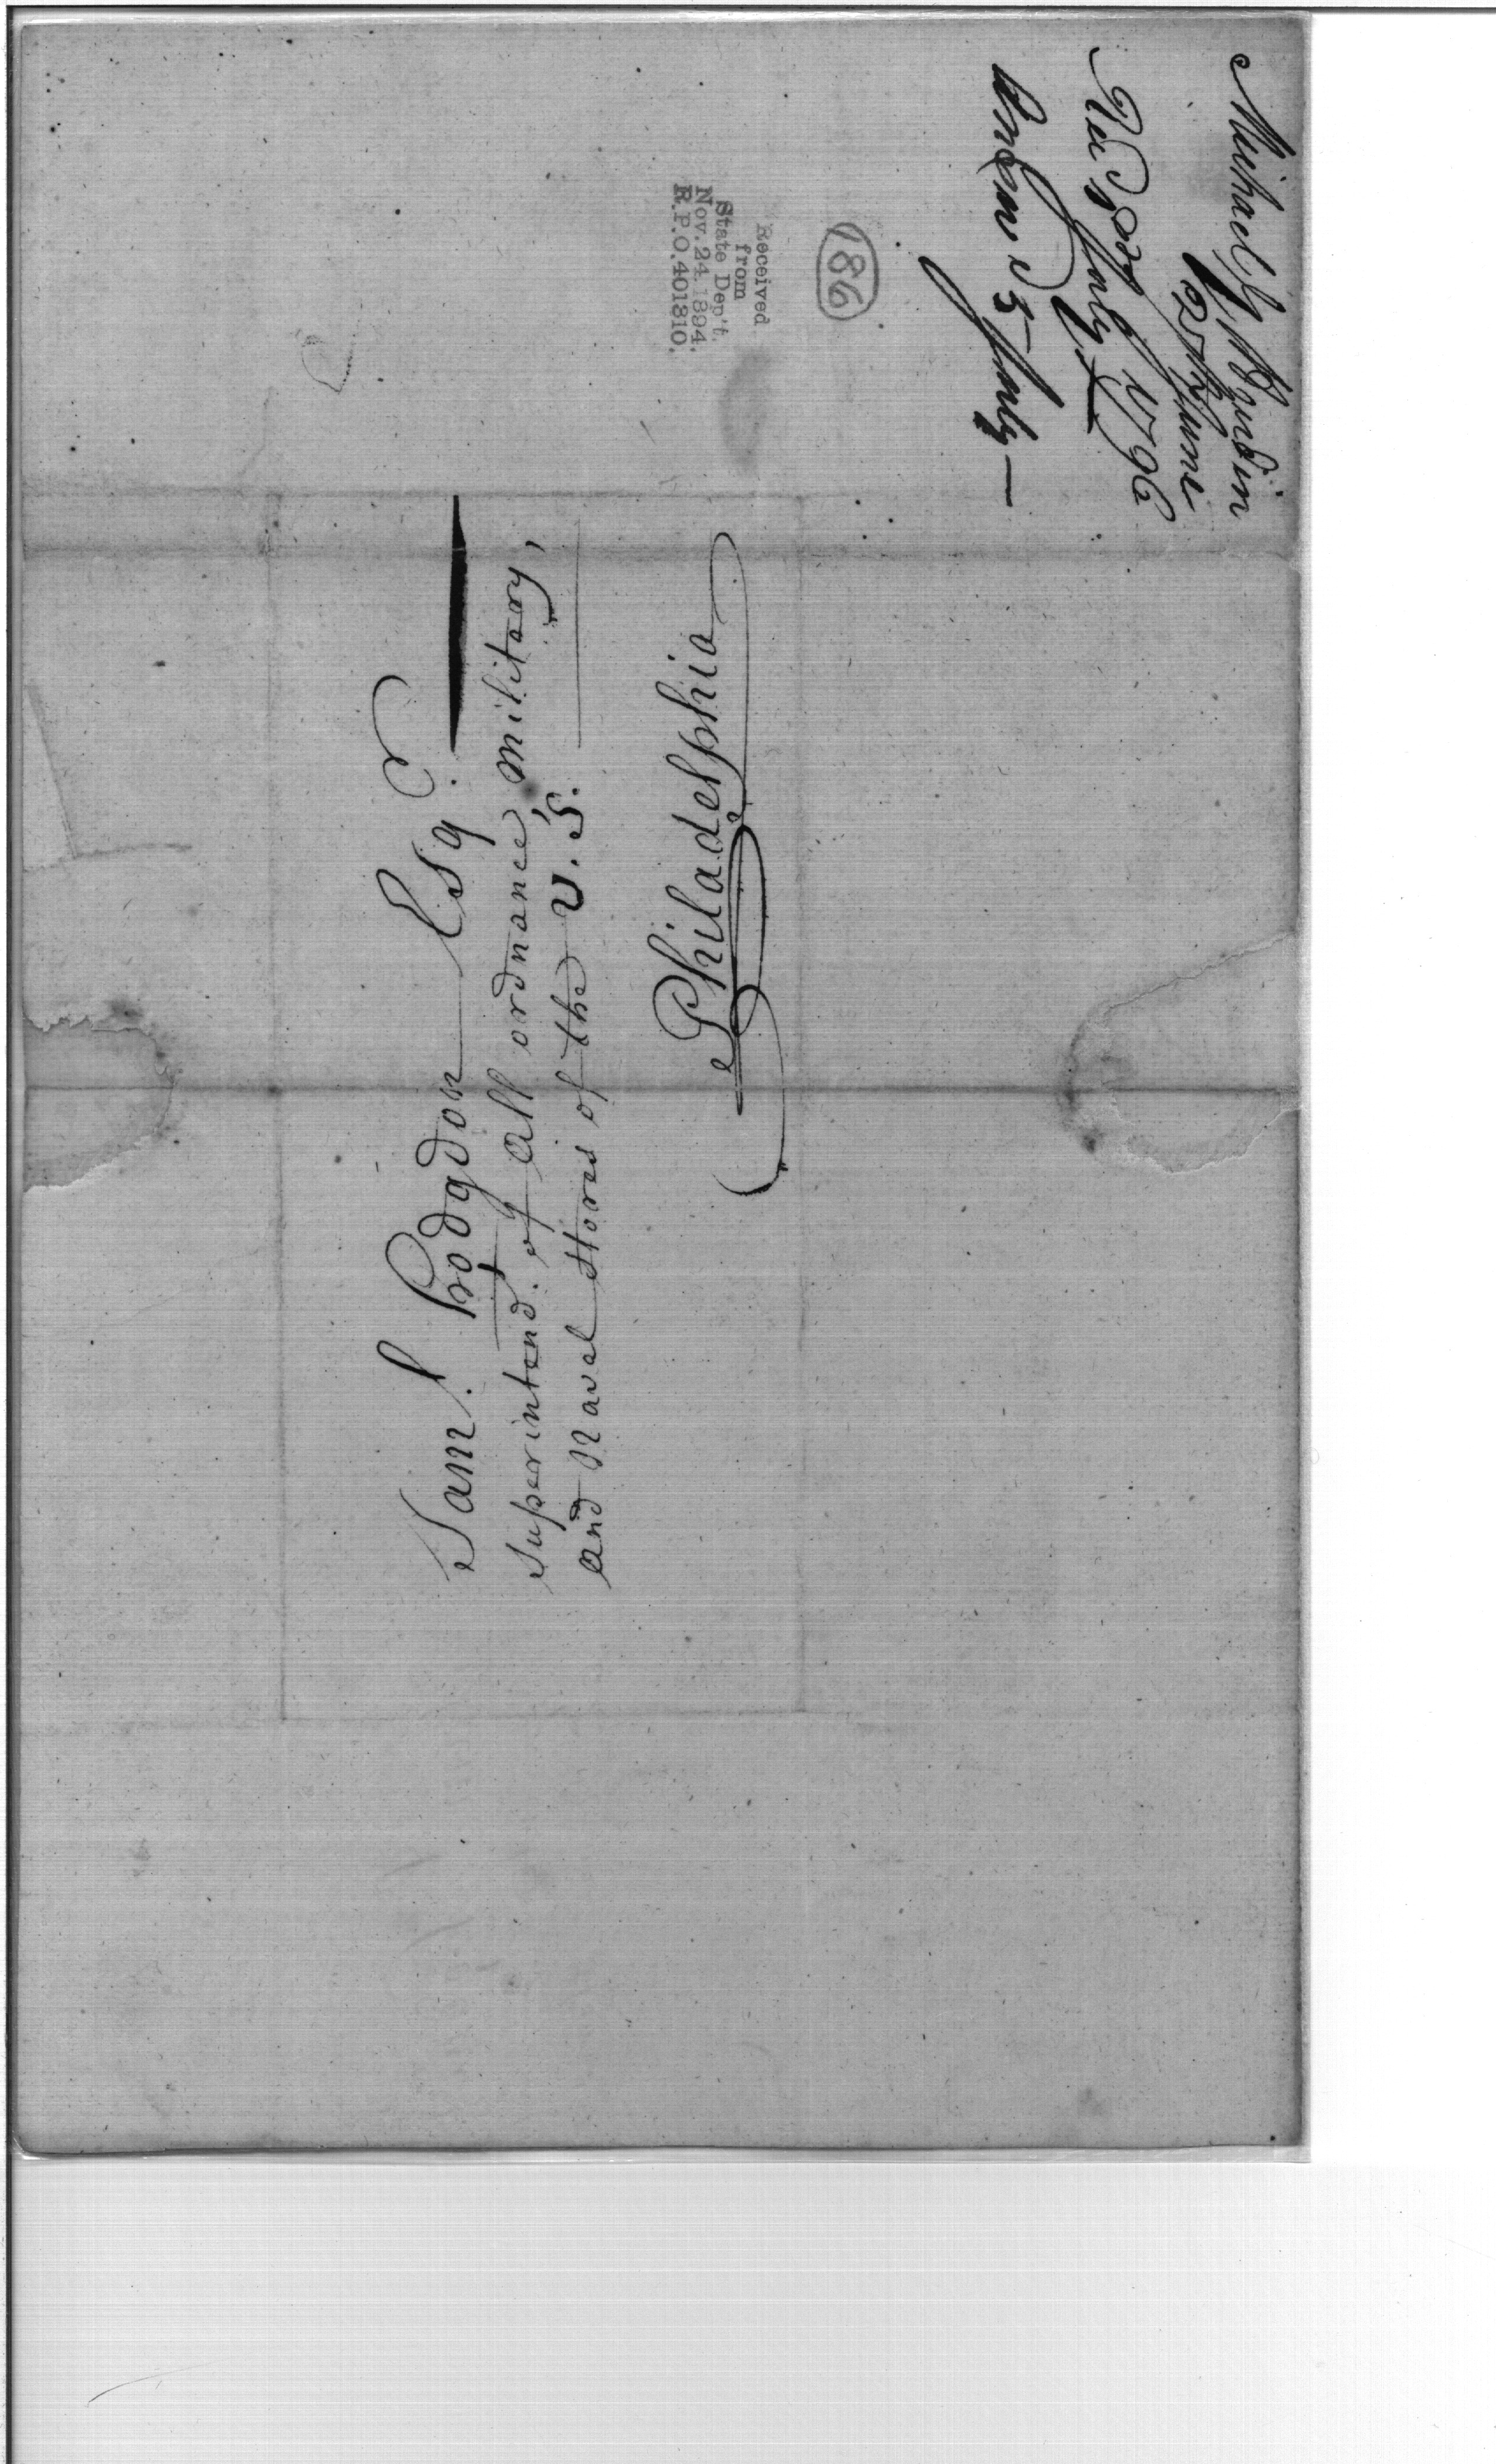 Michael G. Houdin
27th June
Rec'd 1st July 1796
Answ'd 5 July —
186
Received
from
State Dep't.
Nov. 24 1894.
R.P.O. 401810.
Sam.l Hodgdon Esq.
Superintend.t of all ordnance, military,
and Naval Stores of the U.S.
Philadelphia